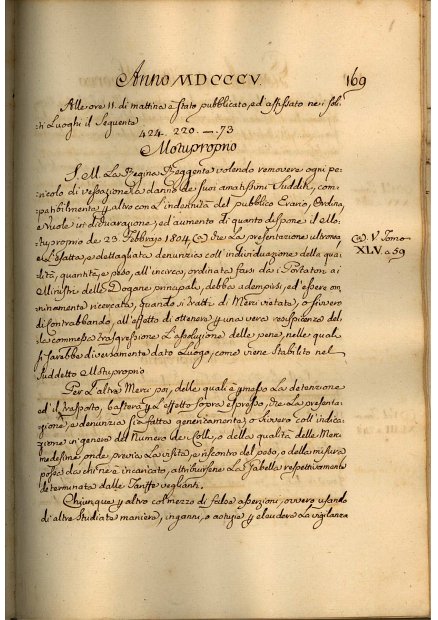 Anno MDCCCV.
169
Alle ore 11. di mattina è stato pubblicato, ed affissato nei soli-
ti Luoghi il Seguente
424. 220. —. 73
Motuproprio
S. M. La Regina Reggente volendo removere ogni pe-
ricolo di vessazione a danno de suoi amatissimi Sudditi, com-
patibilmente p altro con l'indennità del pubblico Erario, Ordina,
e Vuole in dichiarazione, ed aumento di quanto dispone il Mo-
tuproprio de 29. Febbrajo 1804. (a) che La presentazione ultronea
e l'esatta, e dettagliata denunzia coll'individuazione della qua-
lità, quantità, e peso, all'incirca, ordinata farsi da i Portatori ai
Ministri delle Dogane principali, debba ademp​irsi, ed essere om-
ninamente ricercata, quando si tratti di Merci vietate, o sivvero
di Contrabbando, all'effetto di ottenere p una vera resipiscenza del-
la commessa trasgressione L'assoluzione delle pene, nelle quali
si sarebbe diversamente dato Luogo, come viene Stabilito nel
Suddetto Motuproprio
(a) V. Tomo
XLV. a 59
Per L'altre Merci poi, delle quali è pmessa La detenzione
ed il trasporto, basterà p L'effetto sopra espresso, che La presenta-
zione, e denunzia sia fatta genericamente, o sivvero coll'indica-
zione in genere del Numero de Colli, o della qualità delle Merci
medesime, onde, previa La visita, e riscontro del peso, o della misura
possa da chi ne è incaricato, attribuirsene La Gabella respettivamente
determinata dalle Tariffe veglianti.
Chiunque p altro col mezzo di false asserzioni, ovvero usando
di altre Studiate maniere, inganni, o astuzie p eludere La vigilanza